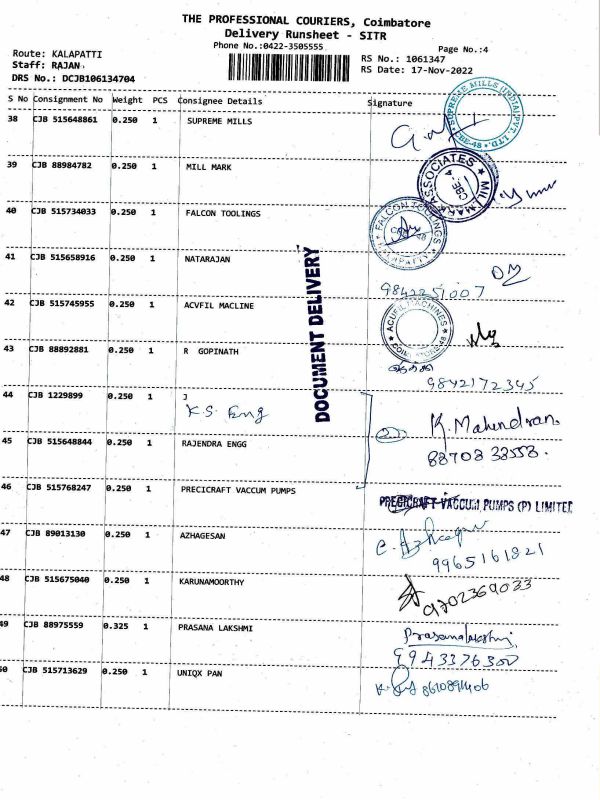 THE PROFESSIONAL COURIERS, Coimbatore
Delivery Runsheet - SITR
Phone No.:0422-3505555
Page No.:4
Route: KALAPATTI
RS No.: 1061347
Staff: RAJAN
RS Date: 17-Nov-2022
DRS No.: DCJB106134704
S No Consignment No Weight PCS Consignee Details Signature
38 CJB 515648861 0.250 1 SUPREME MILLS
SUPREME MILLS (INDIA) PVT. LTD
CBE-48
39 CJB 88984782 0.250 1 MILL MARK
MILL MARK ASSOCIATES
CBE - 4
40 CJB 515734033 0.250 1 FALCON TOOLINGS
FALCON TOOLINGS
41 CJB 515658916 0.250 1 NATARAJAN
9842251007
DOCUMENT DELIVERY
42 CJB 515745955 0.250 1 ACVFIL MACLINE
ACUFIL MACHINES
43 CJB 88892881 0.250 1 R GOPINATH
9842172345
44 CJB 1229899 0.250 1 J
K.S. Eng
K. Mahendran.
88708 33553.
45 CJB 515648844 0.250 1 RAJENDRA ENGG
46 CJB 515768247 0.250 1 PRECICRAFT VACCUM PUMPS
PRECICRAFT VACCUM PUMPS (P) LIMITED
47 CJB 89013130 0.250 1 AZHAGESAN
9965161821
48 CJB 515675040 0.250 1 KARUNAMOORTHY
9702369033
49 CJB 88975559 0.325 1 PRASANA LAKSHMI
Prasanalakshmi
9943376300
50 CJB 515713629 0.250 1 UNIQX PAN
8610891406